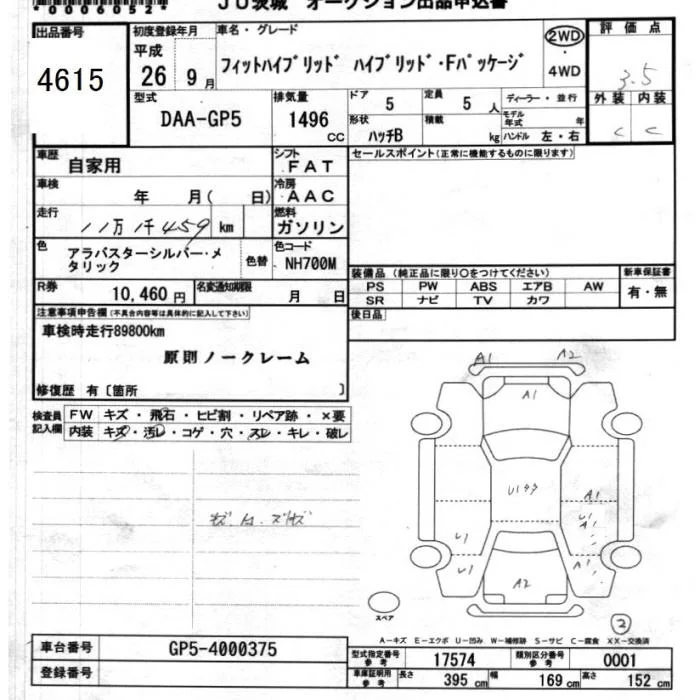 *00060527*
JU茨城 オークション出品申込書
出品番号
4615
初度登録年月
平成
26 9月
車名・グレード
フィットハイブリッド ハイブリッド・Fパッケージ
2WD
・
4WD
評価点
3.5
外装 内装
C C
型式
DAA-GP5
排気量
1496 CC
ドア
5
定員
5 人
ディーラー・並行
モデル年式 年
形状
ハッチB
積載
kg
ハンドル 左・右
車歴
自家用
シフト
FAT
セールスポイント(正常に機能するものに限ります)
車検
年 月( 日)
冷房
AAC
走行
11万1千459 km
燃料
ガソリン
色
アラバスターシルバー・メタリック
色替
色コード
NH700M
装備品(純正品に限り〇をつけてください)
PS PW ABS エアB AW
SR ナビ TV カワ
新車保証書
有・無
R券
10,460円
名変通知期限
月 日
後日品
注意事項申告欄(不具合内容等は具体的に記入して下さい)
車検時走行89800km
原則ノークレーム
修復歴 有〔箇所 〕
検査員記入欄
FW キズ・飛石・ヒビ割・リペア跡・×要
内装 キズ・汚レ・コゲ・穴・スレ・キレ・破レ
A1 A2
A1
U1
A1
U1
A1
U1
U1
A1
A2
スペア
2
A-キズ E-エクボ U-凹み W-補修跡 S-サビ C-腐食 XX-交換済
車台番号
GP5-4000375
登録番号
型式指定番号 参考
17574
類別区分番号 参考
0001
車庫証明用 参考
長さ 395 cm 幅 169 cm 高さ 152 cm